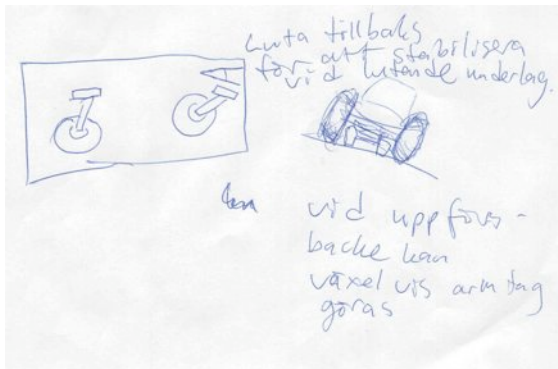 Luta tillbaks
för att stabilisera
vid lutande underlag.
vid uppförs-
backe kan
växel vis armtag
göras